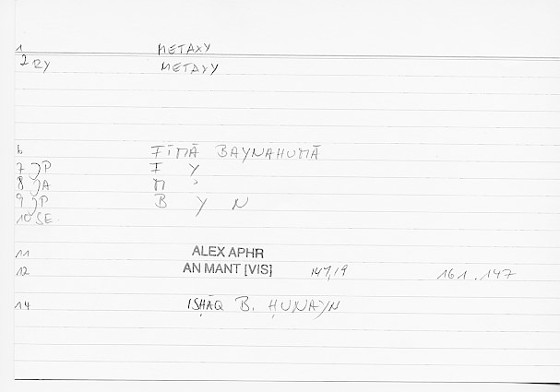 1 METAXY
2 RY METAXY
6 FĪMĀ BAYNAHUMĀ
7 JP F Y
8 JA M
9 JP B Y N
10 SE
11 ALEX APHR
12 AN MANT [VIS] 147,19 161.147
14 ISḤĀQ B. ḤUNAYN